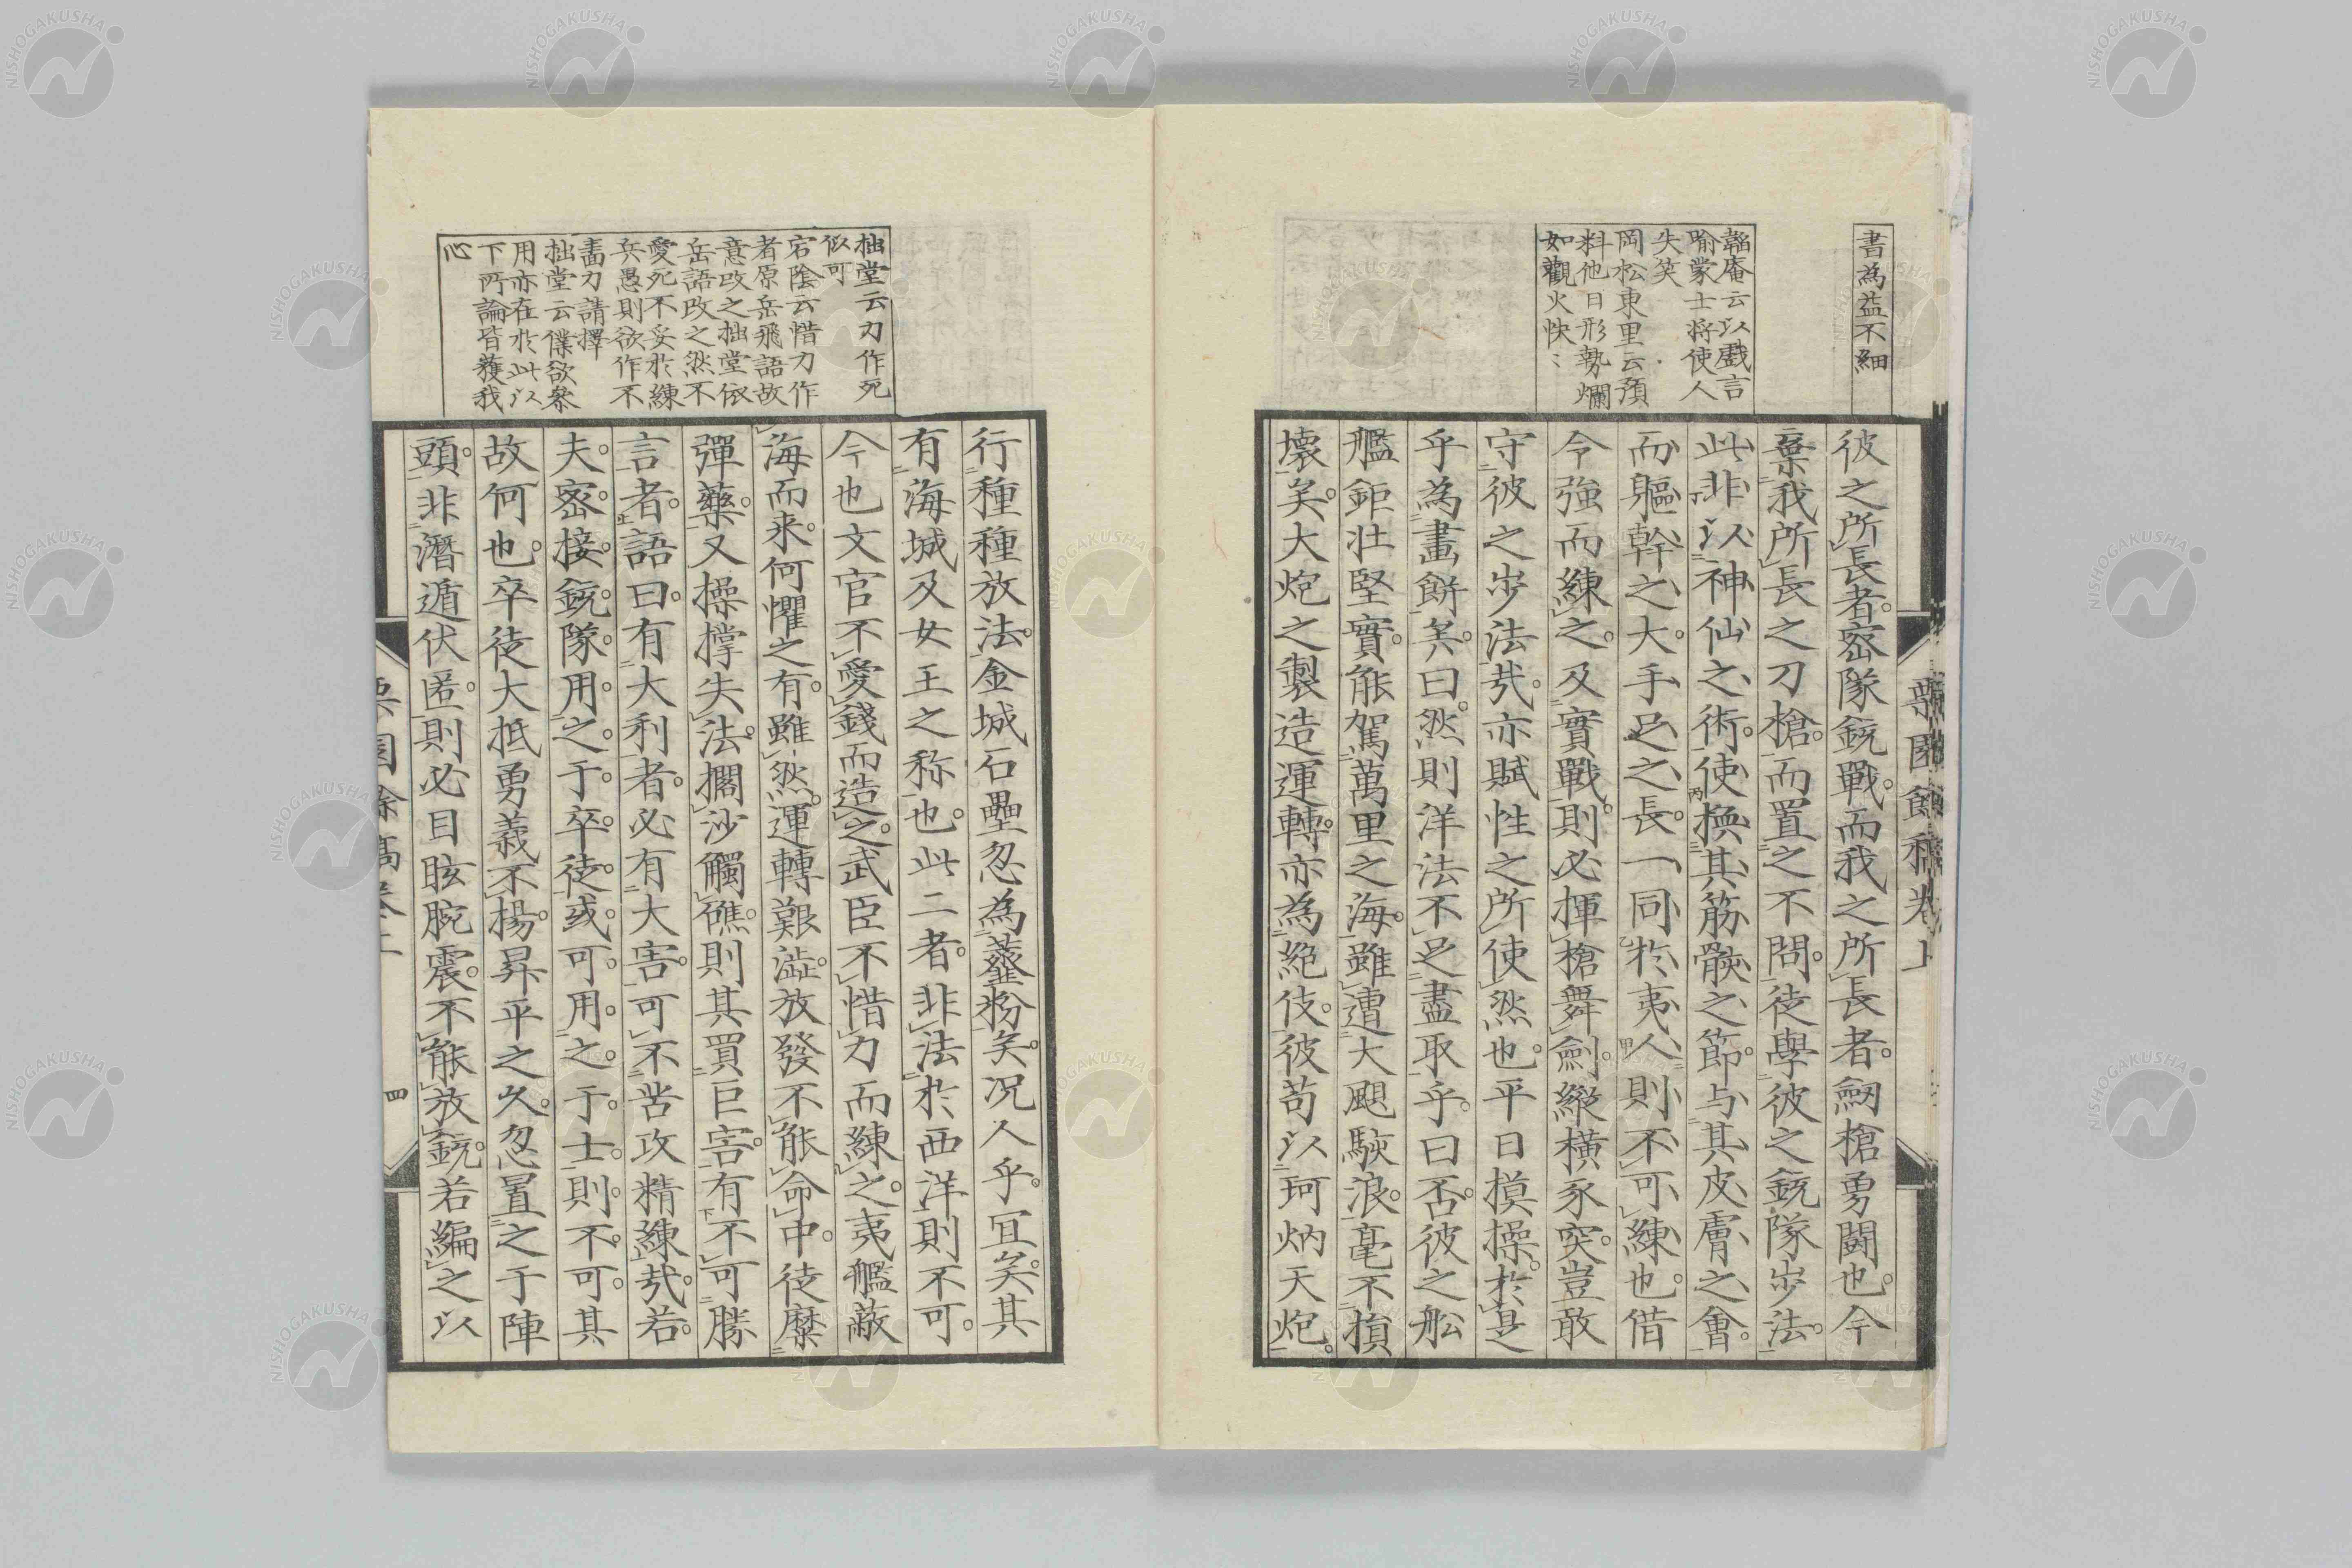 書為益不細
韜庵云以戲言
喻蒙士將使人
失笑
岡松東里云預
料他日形勢爛
如觀火快〻
彼之所長者密隊銃戰而我之所長者劔槍勇鬪也今
棄我所長之刀槍而置之不問徒學彼之銃隊步法
此非以神仙之術使換其筋骸之節与其皮膚之會
而軀幹之大手足之長一同於夷人則不可練也借
令強而練之及實戰則必揮槍舞劍縱橫豕突豈敢
守彼之步法哉亦賦性之所使然也平日摸操於是
乎為畫餅矣曰然則洋法不足盡取乎曰否彼之舩
艦鉅壯堅實能駕萬里之海雖遭大颶駭浪毫不損
壞矣大炮之製造運轉亦為絕伎彼苟以珂炳天炮
拙堂云力作死
似可
宕陰云惜力作
者原岳飛語故
意改之拙堂依
岳語改之然不
愛死不妥於練
兵愚則欲作不
畵力請擇
拙堂云僕欲叅
用亦在於此以
下所論皆獲我
心
行種種放法金城石壘忽為虀粉矣况人乎宜矣其
有海城及女王之称也此二者非法於西洋則不可
今也文官不愛錢而造之武臣不惜力而練之夷艦蔽
海而来何懼之有雖然運轉艱澁放發不能命中徒糜
彈藥又操撑失法擱沙觸礁則其買巨害有不可勝
言者語曰有大利者必有大害可不苦攻精練哉若
夫密接銃隊用之于卒徒或可用之于士則不可其
故何也卒徒大抵勇義不楊昇平之久忽置之于陣
頭非潛遁伏匿則必目眩腕震不能放銃若編之以
四